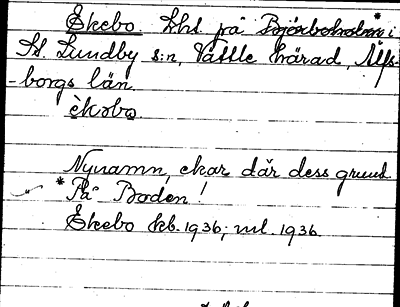 Ekebo lht. på Björboholm * i
St. Lundby s:n, Vättle härad, Älfs-
-borgs län.
èkəbo
Nynamn, ekar där dess grund.
* På Boden!
Ekebo kb. 1936; ml. 1936.